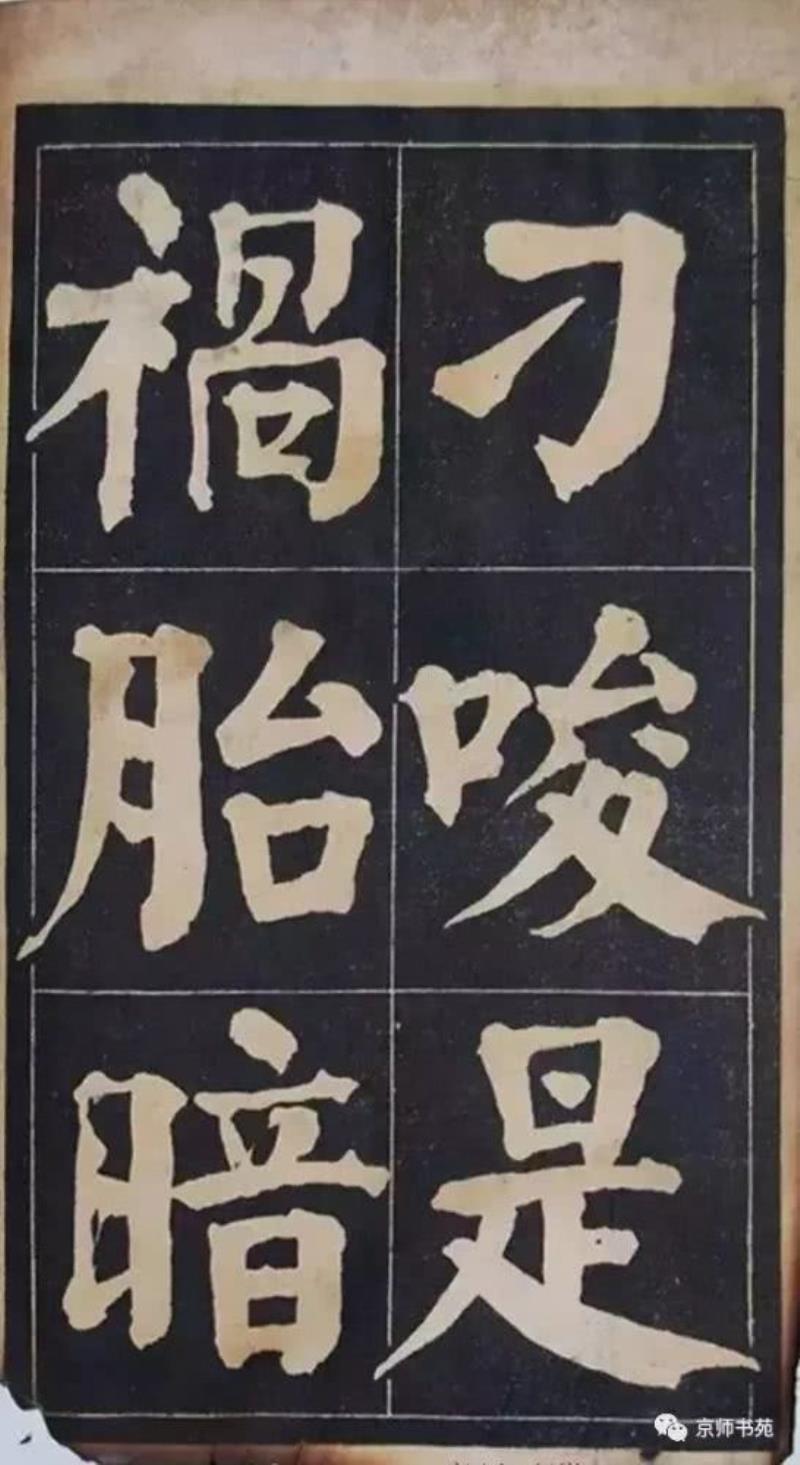 刁唆是
禍胎暗
京师书苑